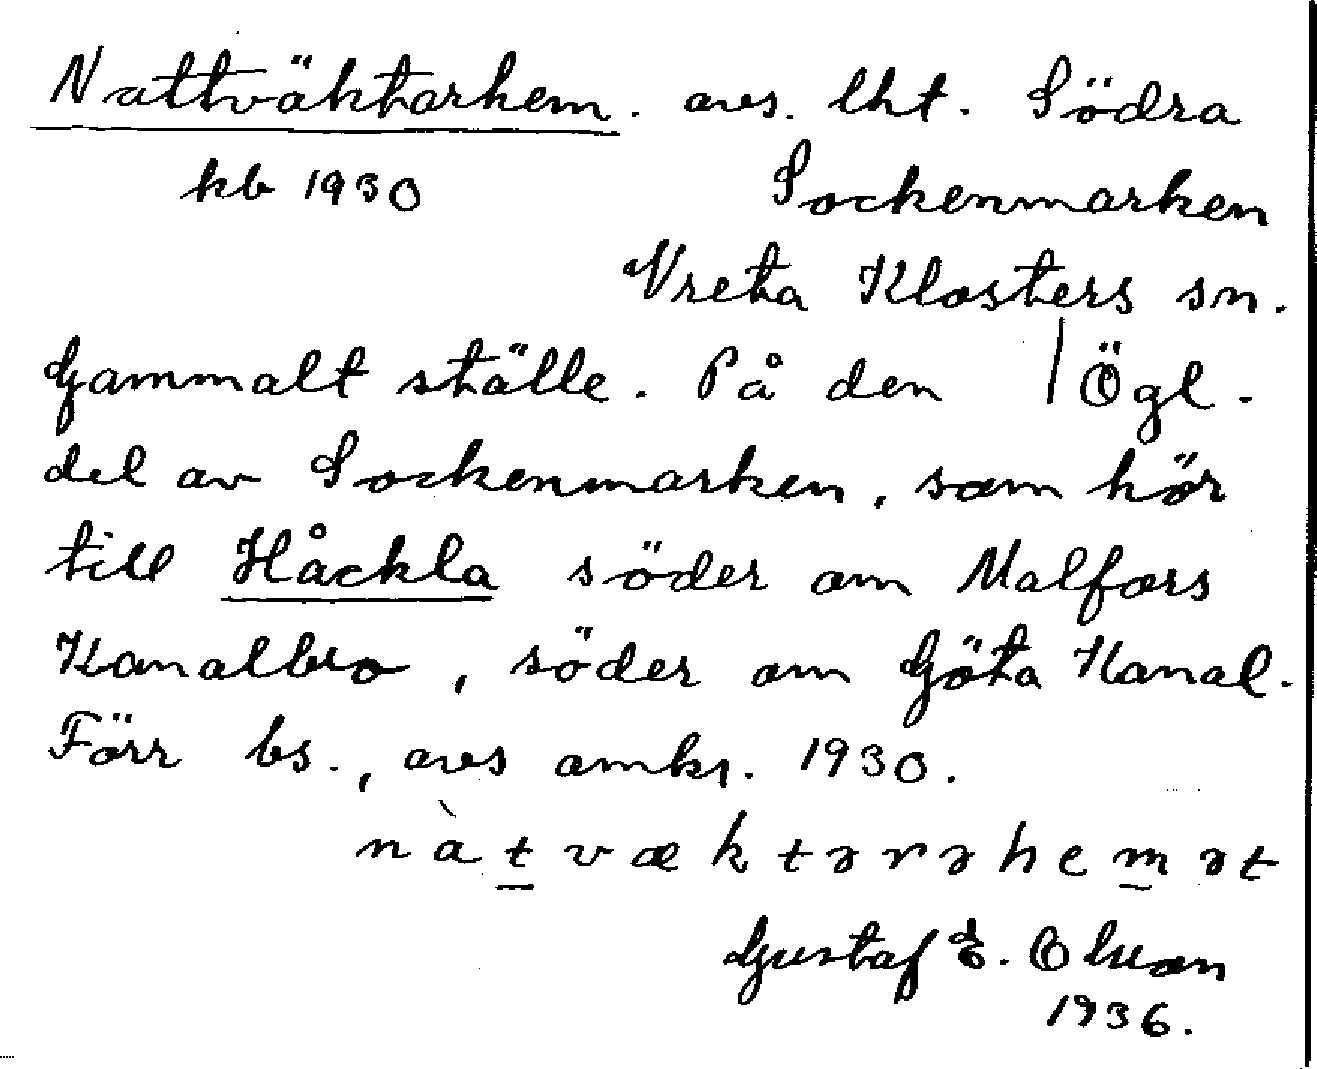 Nattväktarhem. avs. lht. Södra
kb 1930 Sockenmarken
Vreta Klosters sn.
Gammalt ställe. På den | Ögl.
del av Sockenmarken, som hör
till Håckla söder om Malfors
Kanalbro, söder om Göta Kanal.
Förr bs., avs omkr. 1930.
nàtvæktərəhemət
Gustaf E. Olson
1936.